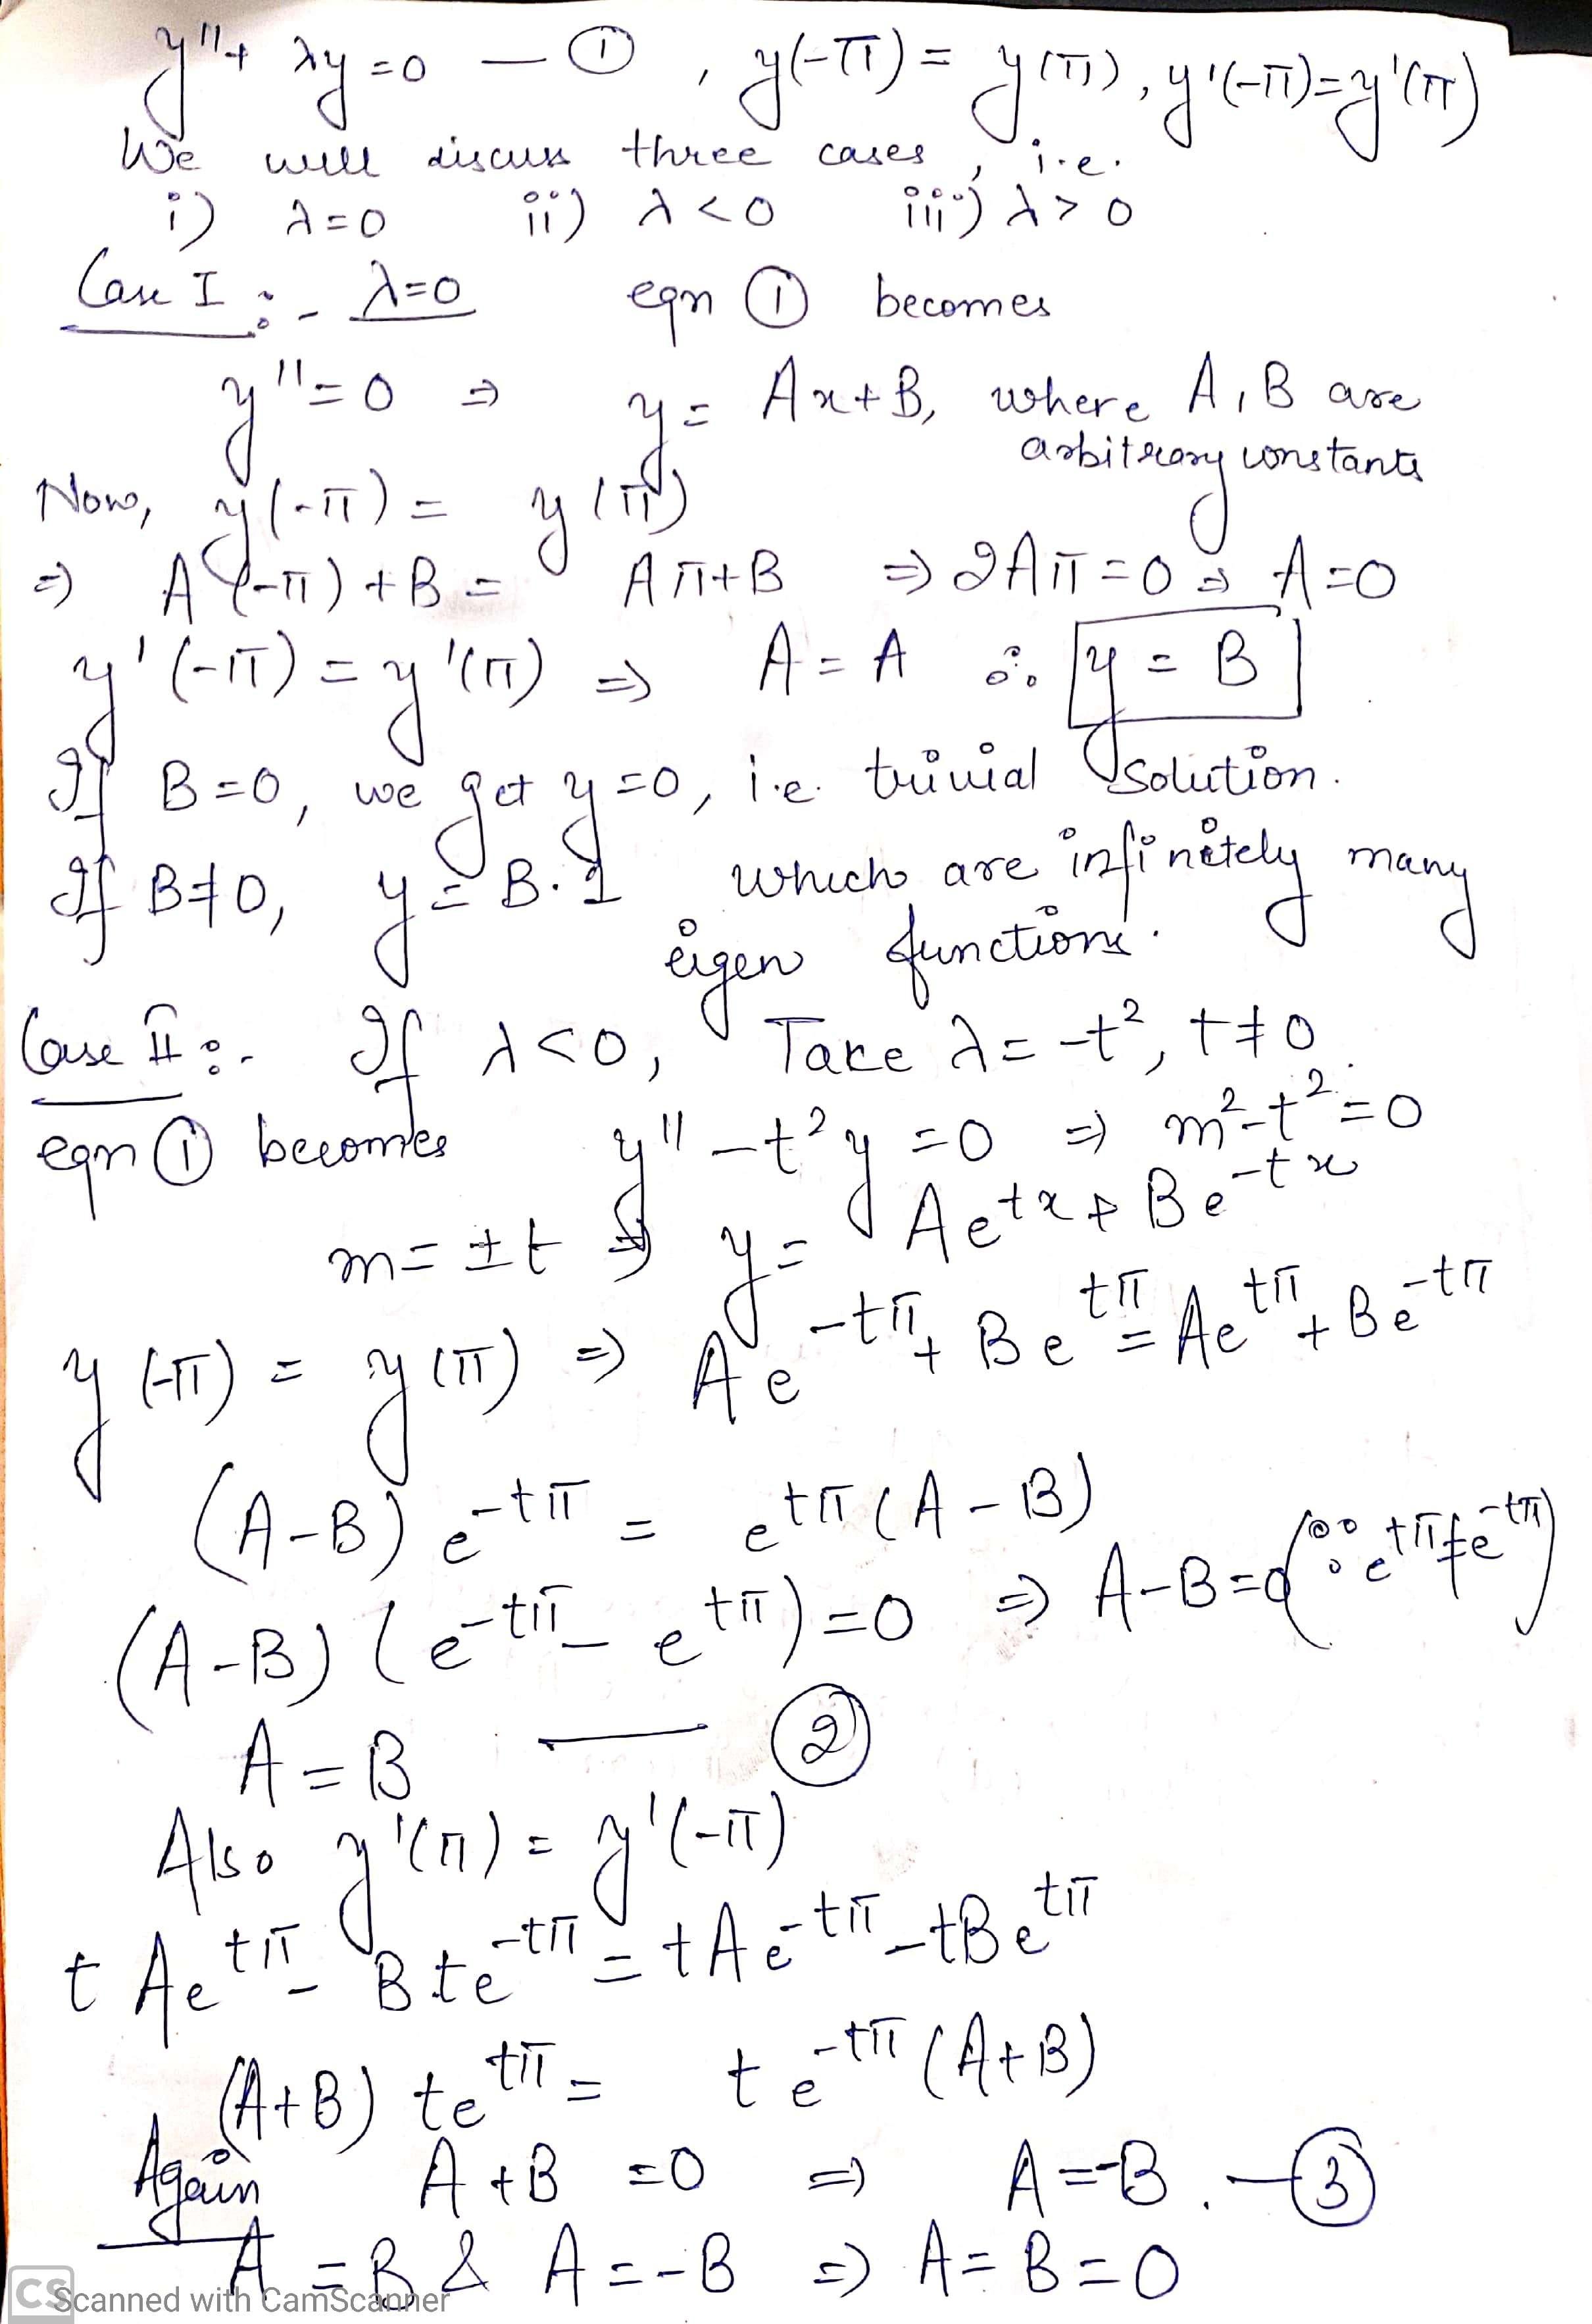 y'' + λy = 0 — ① , y(-π) = y(π), y'(-π) = y'(π)
We will discuss three cases, i.e.
i) λ = 0 ii) λ < 0 iii) λ > 0
Case I :- λ = 0 eqn ① becomes
y'' = 0 ⇒ y = Ax + B, where A, B are
arbitrary constants
Now, y(-π) = y(π)
⇒ A(-π) + B = Aπ + B ⇒ 2Aπ = 0 ⇒ A = 0
y'(-π) = y'(π) ⇒ A = A ∴ y = B
If B = 0, we get y = 0, i.e. trivial solution.
If B ≠ 0, y = B.1 which are infinitely many
eigen functions.
Case II :- If λ < 0, Take λ = -t², t ≠ 0.
eqn ① becomes y'' - t²y = 0 ⇒ m² - t² = 0
m = ±t ⇒ y = Ae^{tx} + Be^{-tx}
y(-π) = y(π) ⇒ Ae^{-tπ} + Be^{tπ} = Ae^{tπ} + Be^{-tπ}
(A-B) e^{-tπ} = e^{tπ} (A-B)
(A-B) (e^{-tπ} - e^{tπ}) = 0 ⇒ A-B = 0 (∵ e^{tπ} ≠ e^{-tπ})
A = B — ②
Also y'(π) = y'(-π)
tAe^{tπ} - Bte^{-tπ} = tAe^{-tπ} - tBe^{tπ}
(A+B) te^{tπ} = te^{-tπ} (A+B)
Again A + B = 0 ⇒ A = -B. — ③
A = B & A = -B ⇒ A = B = 0
CS Scanned with CamScanner